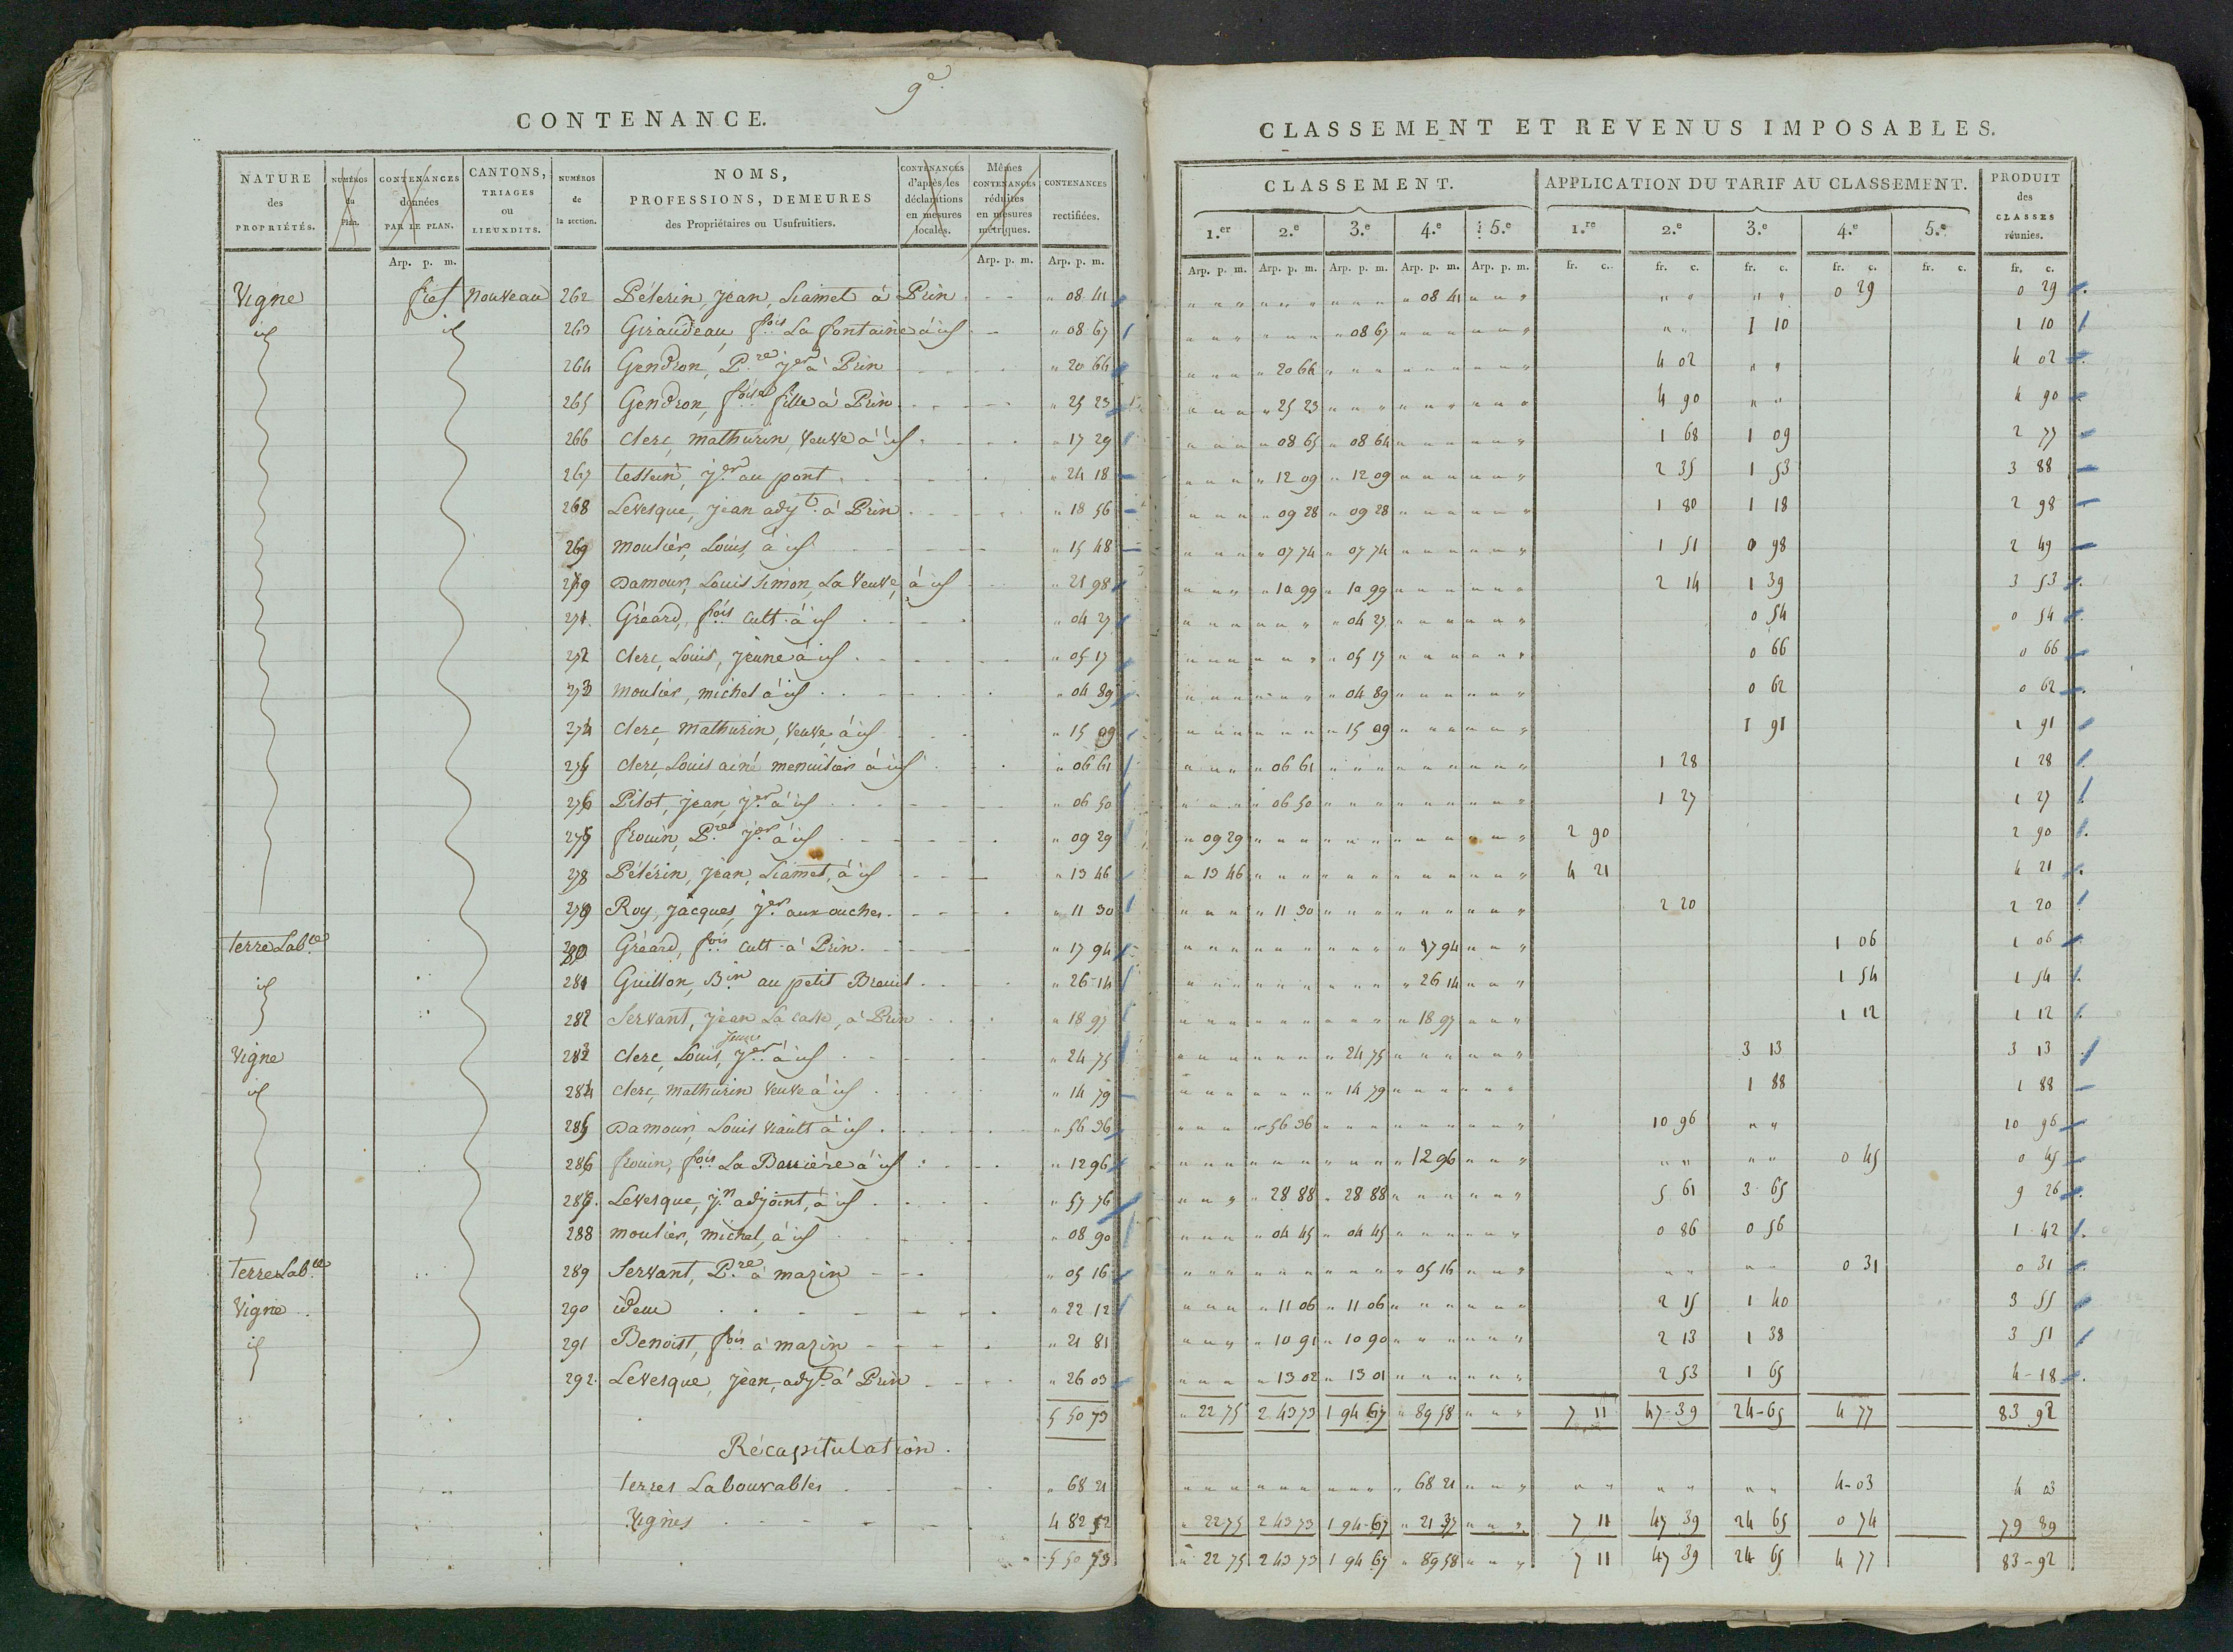 9e
CONTENANCE.
NATURE des PROPRIÉTÉS. NUMÉROS du Plan. CONTENANCES données PAR LE PLAN. CANTONS, TRIAGES ou LIEUXDITS. NUMÉROS de la section. NOMS, PROFESSIONS, DEMEURES des Propriétaires ou Usufruitiers. CONTENANCES d'après les déclarations en mesures locales. Mêmes CONTENANCES réduites en mesures métriques. CONTENANCES rectifiées.
Arp. p. m. Arp. p. m. Arp. p. m.
Vigne fief Nouveau 262 Pélerin, jean, Liamet à Prin " 08 41
id id 263 Giraudeau, fois La fontaine à id " 08 67
264 Gendron, P.re jer à Prin " 20 66
265 Gendron, foise fille à Prin " 25 23
266 Clerc, mathurin, veuve à id " 17 29
267 tessein, jer au pont " 24 18
268 Levesque, jean adjt à Prin " 18 56
269 moulier, Louis, à id " 15 48
270 Damour, Louis Simon, La Veuve, à id " 21 98
271 Gréard, fois cult. à id " 04 27
272 Clerc, Louis, jeune à id " 05 17
273 moulier, michel à id " 04 89
274 Clerc, mathurin, veuve à id " 15 09
275 Clerc, Louis ainé menuisier à id " 06 61
276 Pilot, jean, jer à id " 06 50
277 frouin, P.re jer à id " 09 29
278 Pélérin, jean, Liamet, à id " 13 46
279 Roy, jacques, jer aux ouches " 11 30
terre Lab.le 280 Gréard, fois cult. à Prin " 17 94
id 281 Guillon, B.in au petit Breuil " 26 14
282 Servant, jean La casse, à Prin " 18 97
Vigne 283 Clerc, Louis, jeune jer à id " 24 75
id 284 Clerc, mathurin veuve à id " 14 79
285 Damour, Louis viault à id " 56 36
286 frouin, fois La Barrière à id " 12 96
287 Levesque, j.n adjoint, à id " 57 76
288 moulier, michel, à id " 08 90
terre Lab.le 289 Servant, P.re à mazin " 05 16
Vigne 290 idem " 22 12
id 291 Benoist, fois à mazin " 21 81
292 Levesque, jean, adjt à Prin " 26 03
5 50 73
Récapitulation.
terres Labourables " 68 21
Vignes 4 82 52
5 50 73
CLASSEMENT ET REVENUS IMPOSABLES.
CLASSEMENT. APPLICATION DU TARIF AU CLASSEMENT. PRODUIT des CLASSES réunies.
1.er 2.e 3.e 4.e 5.e 1.re 2.e 3.e 4.e 5.e
Arp. p. m. Arp. p. m. Arp. p. m. Arp. p. m. Arp. p. m. fr. c. fr. c. fr. c. fr. c. fr. c. fr. c.
" 08 41 0 29 0 29
" 08 67 1 10 1 10
" 20 66 4 02 4 02
" 25 23 4 90 4 90
" 08 65 " 08 64 1 68 1 09 2 77
" 12 09 " 12 09 2 35 1 53 3 88
" 09 28 " 09 28 1 80 1 18 2 98
" 07 74 " 07 74 1 51 0 98 2 49
" 10 99 " 10 99 2 14 1 39 3 53
" 04 27 0 54 0 54
" 05 17 0 66 0 66
" 04 89 0 62 0 62
" 15 09 1 91 1 91
" 06 61 1 28 1 28
" 06 50 1 27 1 27
" 09 29 2 90 2 90
" 13 46 4 21 4 21
" 11 30 2 20 2 20
" 17 94 1 06 1 06
" 26 14 1 54 1 54
" 18 97 1 12 1 12
" 24 75 3 13 3 13
" 14 79 1 88 1 88
" 56 36 10 96 " " 10 96
" 12 96 0 45 0 45
" 28 88 " 28 88 5 61 3 65 9 26
" 04 45 " 04 45 0 86 0 56 1 42
" 05 16 0 31 0 31
" 11 06 " 11 06 2 15 1 40 3 55
" 10 91 " 10 90 2 13 1 38 3 51
" 13 02 " 13 01 2 53 1 65 4-18
" 22 75 2 43 73 1 94 67 " 89 58 7 11 47-39 24-65 4 77 83 92
" 68 21 4-03 4 03
" 22 75 2 43 73 1 94-67 " 21 37 7 11 47 39 24 65 0 74 79 89
" 22 75 2 43 73 1 94 67 " 89 58 7 11 47 39 24 65 4 77 83-92